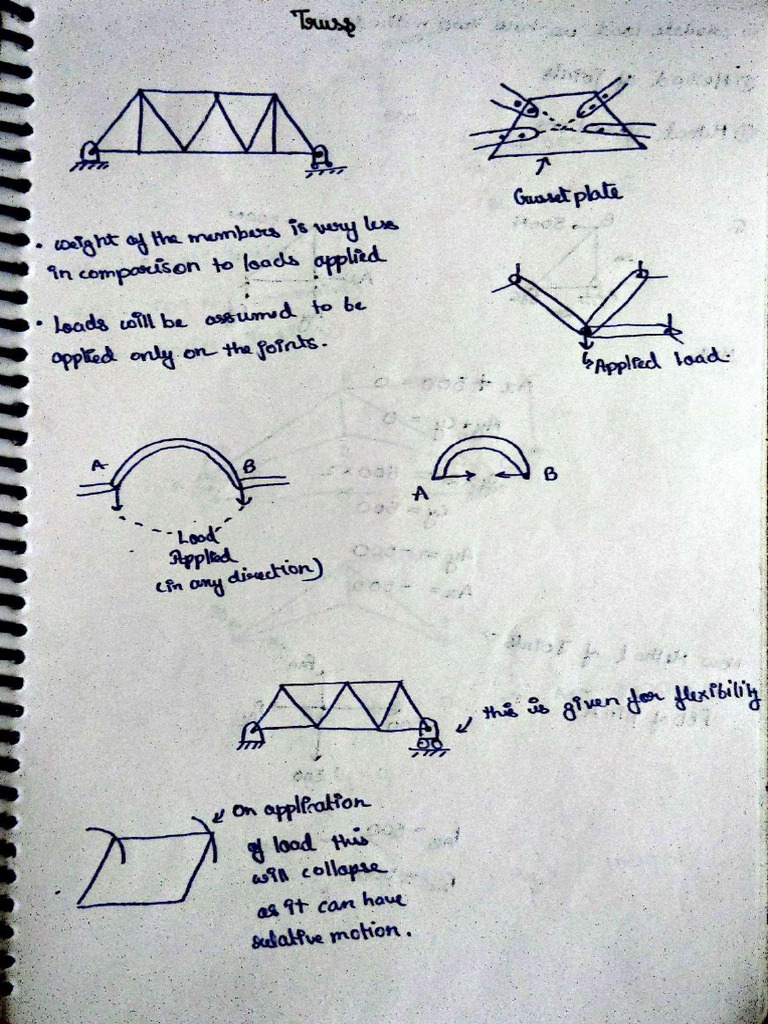 Truss
Gusset plate
• weight of the members is very less
in comparison to loads applied
• Loads will be assumed to be
applied only on the joints.
Applied load.
A B
A B
Load
Applied
(in any direction)
this is given for flexibility
On application
of load this
will collapse
as it can have
relative motion.